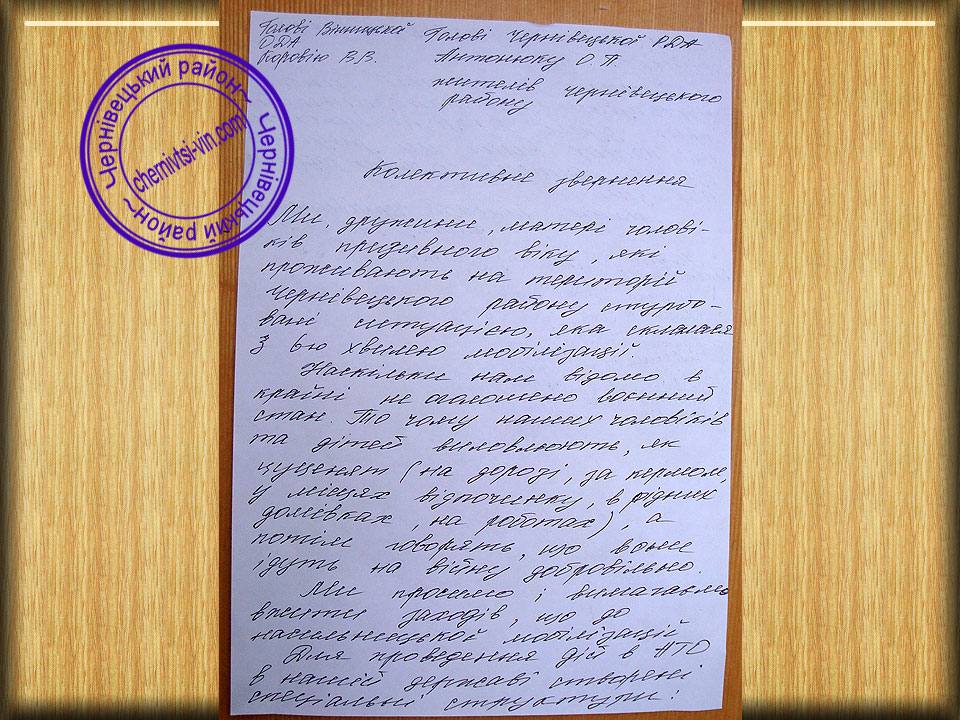 Голові Вінницької
ОДА
Коровію В.В.
Голові Чернівецької РДА
Антонюку О П
жителів чернівецького
району
Чернівецький район~
Чернівецький район~
chernivtsi-vin.com
Колективне звернення
Ми, дружини, матері чолові-
ків призивного віку, які
проживають на території
Чернівецького району стурбо-
вані ситуацією, яка склалася
з 6-ю хвилею мобілізації.
Наскільки нам відомо в
країні не оголошено воєнний
стан. То чому наших чоловіків
та дітей виловлюють, як
цуценят (на дорозі, за кермом,
у місцях відпочинку, в рідних
домівках, на роботах), а
потім говорять, що вони
ідуть на війну добровільно.
Ми просимо і вимагаємо
вжити заходів, що до
насильницької мобілізації
Для проведення дій в АТО
в нашій державі створені
спеціальні структури: